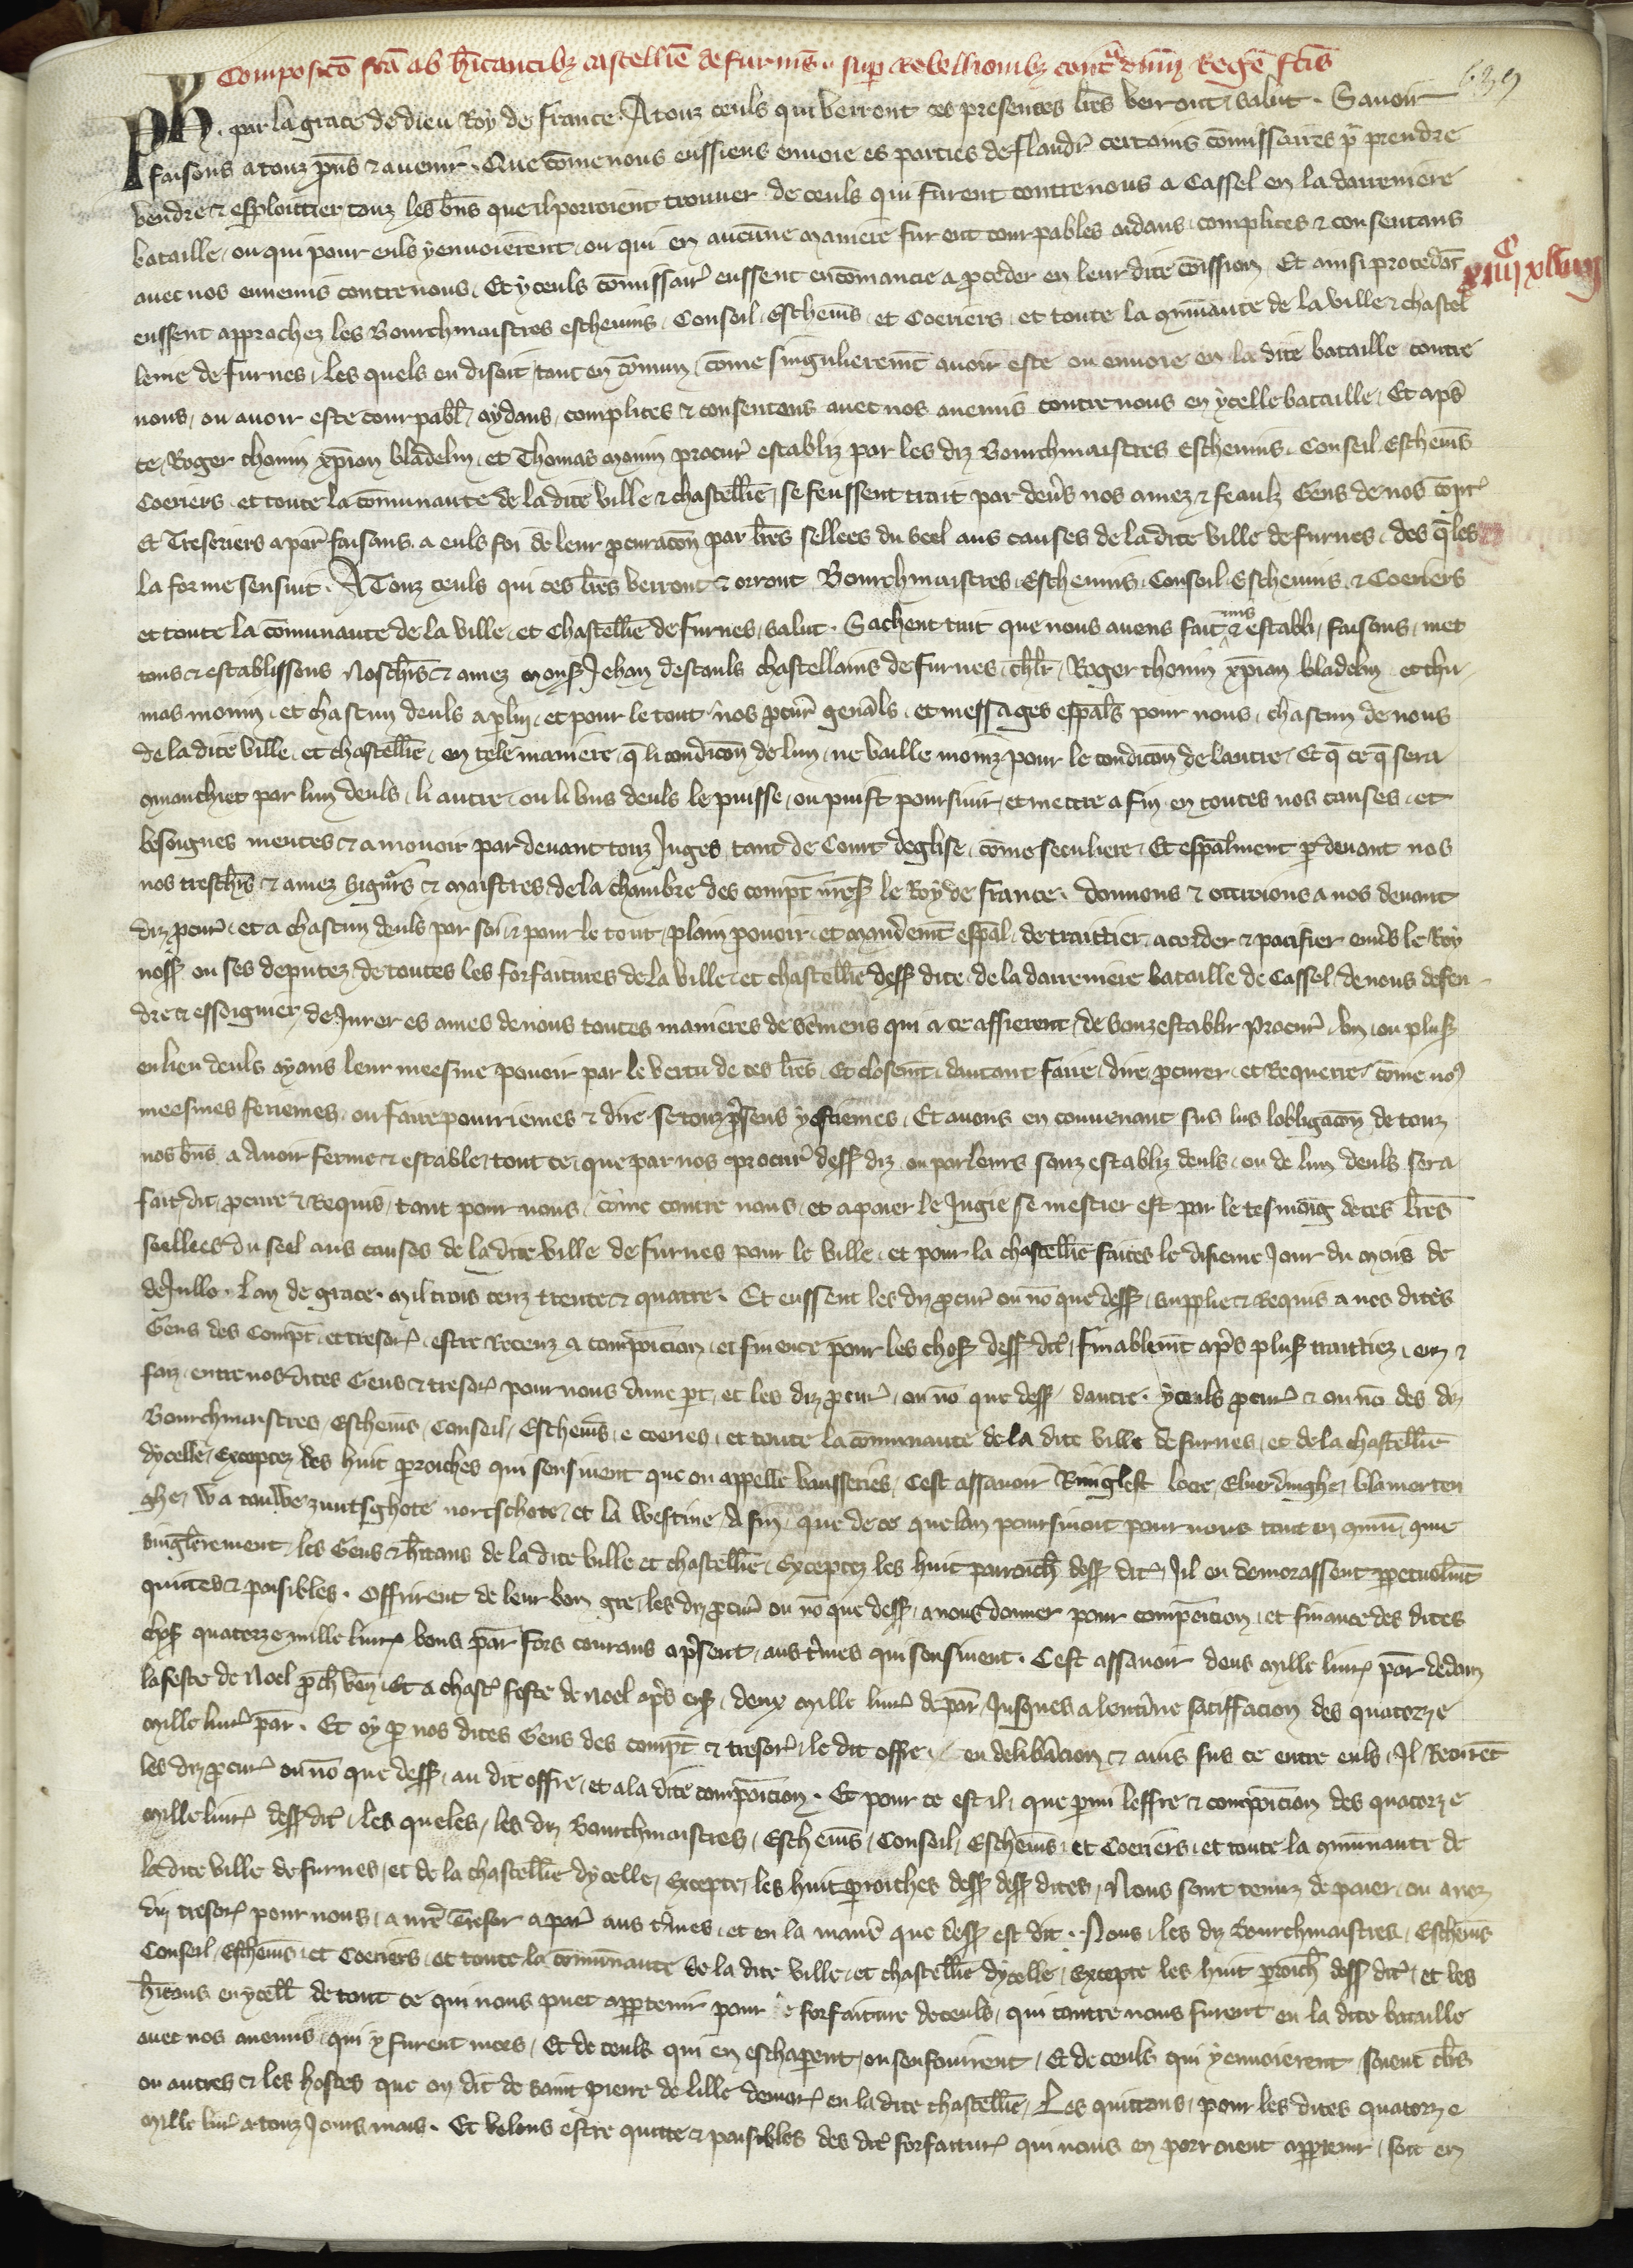 Composicō fcā ab h̄itantibz castellīe de furnis. sup Rebellionibz contᵃ dnm̄ Regē fctīs
639
Ph. par la grace de dieu Roy de france. A touz ceuls qui verront ces presentes lr̄es verront salut. Sauoir
faisons a touz pn̄s & auenir. Que cōme nous eussiens enuoie es parties de flandr̄ certains cōmissaires pᵃ prendre
vendre & esploittier touz les bn̄s que il porroient trouuer de ceuls qui furent contre nous a Cassel en la darreniere
bataille, ou qui pour euls y enuoierent, ou qui en aucune maniere furent courpables aidans, complices & consentans
auec nos ennemis contre nous. Et yceuls cōmissair̄ eussent encōmancie a proceder en leur dite cōission Et ainsi procedāt
xiiijᶜ xlviij
eussent approchez les Bourchmaistres escheuins, Conseil, Escheuīs, et Coeriers, et toute la cōmunaute de la ville & chastel
lenie de furnes, Les quels en disoit tant en cōmun, cōme singulieremt̄ auoir este ou enuoie en la dite bataille contre
nous, ou auoir este courpabl̄ aydans, complices & consentens auec nos anemis contre nous en ycelle bataille, Et apꝭ
ce, Roger thonin xp̄ian bladelin, et Thomas monin procur̄ establiz par les diz Bourchmaistres Escheuins. Conseil. Escheuīs
Coeriers, et toute la cōmunaute de la dite ville & chastellīe, se feussent trait par deuꝰs nos amez & feaulz Gens de nos cōpt̄
Et Tresoriers a par̄ faisans a euls foi de leur pcuracōn par lr̄es sellees du seel aus causes de la dite ville de furnes, des qͣles
la forme sensuit. A Touz ceuls qui ces lr̄es verront & orront Bourchmaistres, Escheuins, Conseil, Escheuins, & Coeriers
et toute la cōmunaute de la ville, et Chastellīe de furnes, salut. Sachent tuit que nous auens fait mis & establi, faisons, met
tons & establissons Nos chr̄s & amez monsꝭ Jehan destauls chastellains de furnes, chlr̄, Roger thonin xp̄ian bladelin et tho
mas monin, et chascun deuls a pluī, et pour le tout nos pcur̄ genāls, et messages espālꝭ pour nous, chascun de nous
de la dite ville, et chastellīe, en tele maniere, q̄ li condicōn de lun, ne vaille moinz pour le condicōn de lautre, Et q̄ ce q̄ sera
cōmanchiet par lun deuls, li autre, ou li vns deuls le puisse, ou puist poursiuir, et mettre a fin en toutes nos causes, et
besoignes meutes & a mouoir par deuant touz Juges, tant de Court deglise, cōme seculiere, Et espālment pᵃ deuant nos
nos treschr̄s & amez signʳs & maistres de la chambre des compt̄ nr̄esꝭ le Roy de france. donnons & ottroions a nos deuant
diz pcur̄, et a chascun deuls par soi, & pour le tout, plain pouoir, et mandemt̄ espāl, de traittier, acorder & pacifier enuꝰs le Roy
nossꝭ ou ses deputez de toutes les forfaitures de la ville, et chastellīe dessꝭ dite, de la darreniere bataille de Cassel, de nous defen
dre & essoignier, de Jurer es ames de nous toutes manieres de sēmens qui a ce affierent, de souzestablir procur̄, vn, ou plusꝭ
en lieu deuls ayans leur meesme pouoir par le vertu de ces lr̄es, Et closem̄t, dautant faire, dire, pcurer, et Requerre, cōme noꝰ
meesmes feriemes, ou faire pourriemes & dire se touz pꝰsens y estiemes, Et auons en conuenant sus lus lobligacōn de touz
nos bn̄s a auoir ferme & estable, tout ce, que par nos procur̄ dessꝭ diz ou par leurs souz establiz deuls, ou de lun deuls sera
fait, dit, pcure & Requis, tant pour nous, cōme contre nous, et a paier le Jugie se mestier est par le tesmoīg de ces lr̄es
seellees du seel aus causes de la dite ville de furnes pour le ville, et pour la chastellīe faites le disieme Jour du mois de
de Jullo. Lan de grace. mil trois cenz trente & quatre. Et eussent les diz pcur̄ ou nō que dessꝭ, supplie & Requis a nos dites
Gens des Compt̄, et tresorꝭ, estre Receuz a compōicion, et finence pour les chosꝭ dessꝭ dcꝭ, finablem̄t apꝭs plusꝭ traittiez, euz &
faiz, entre nosdites Gens & tresorꝭ pour nous dune pt̄, et les diz pcur̄, ou nō que dessꝭ, dautre. yceuls pcur̄ & ou nō des diz
Bourchmaistres, Escheuīs, Conseil, Escheuīs, e coeries, et toute la cōmunaute de la dite ville de furnes, et de la chastellīe
dycelle, Exceptez des huit proiches qui sensiuent que on appelle vausseries, Cest assauoir Ruingleft loere, Eluerdinghe, blamerten
ghe, Wa tauwe zuutsghote nortschote, et la Westine, A fin, que de ce que lan poursiuoit pour nous tant en cōmū, cōme
singlerement, les Gens & h̄itans de la dite ville et chastellīe, Exceptez les huit paroich̄ dessꝭ dcꝭ, Il en demorassent ppetuelm̄t
quittes & paisibles. Offrirent de leur bon gre, les diz pcur̄ ou nō que dessꝭ, a nous donner pour compōicion, et finance des dites
chosꝭ quatorze mille liurꝭ bons par̄ fors courans a pꝰsent, aus tꝰmes qui sensiuent. Cest assauoir deus mille liurꝭ par̄ dedanz
la feste de Noel pch̄ ven̄, Et a chascꝭ feste de Noel apꝭs ensꝭ, deux mille liurꝭ de par̄ Jusques a lentꝰine satiffacion des quatorze
mille liurꝭ par̄. Et oy p nos dites Gens des compt̄ & tresorꝭ, le dit offre, en delibācion & auis sus ce entre euls, Il Recurēt
les diz pcur̄ ou nō que dessꝭ, au dit offre, et a la dite compōicion. Et pour ce est il, que pmi loffre & compōicion des quatorze
mille liurꝭ dessꝭ dcꝭ, les queles, les diz Bourchmaistres, Escheuīs, Conseil, Escheuīs, et Coeriers, et toute la cōmunaute de
la dite ville de furnes, et de la chastellīe dycelle, Excepte, les huit proiches dessꝭ dessꝭ dites, Nous sont tenuz de paier, ou a noz
diz tresorꝭ pour nous, a nr̄e Tresor a par̄ aus tꝰmes, et en la manīe que dessꝭ est dit. Nous, les diz Bourchmaistres, Escheuīs
Conseil, Escheuīs, et Coeriers, et toute la cōmunaute de la dite ville, et chastellīe dycelle, Excepte les huit proich̄ dessꝭ dcꝭ, et les
h̄itans en ycell̄ de tout ce qui nous puet appartenir pour le forfaiture de ceuls, qui contre nous furent en la dite bataille
auec nos anemis, qui y furent mors, Et de ceuls qui en eschaperent, ou senfouirent, Et de ceuls qui y enuoierent, soient clꝰs
ou autres & les hostes que on dit de saint pierre de lille demorꝭ en la dite chastellīe, Les quittons, pour les dites quatorze
mille liurꝭ a touz Jours mais. Et volons estre quitte & paisibles des dcꝭ forfaiturꝭ qui nous en porroient appartenir, soit en